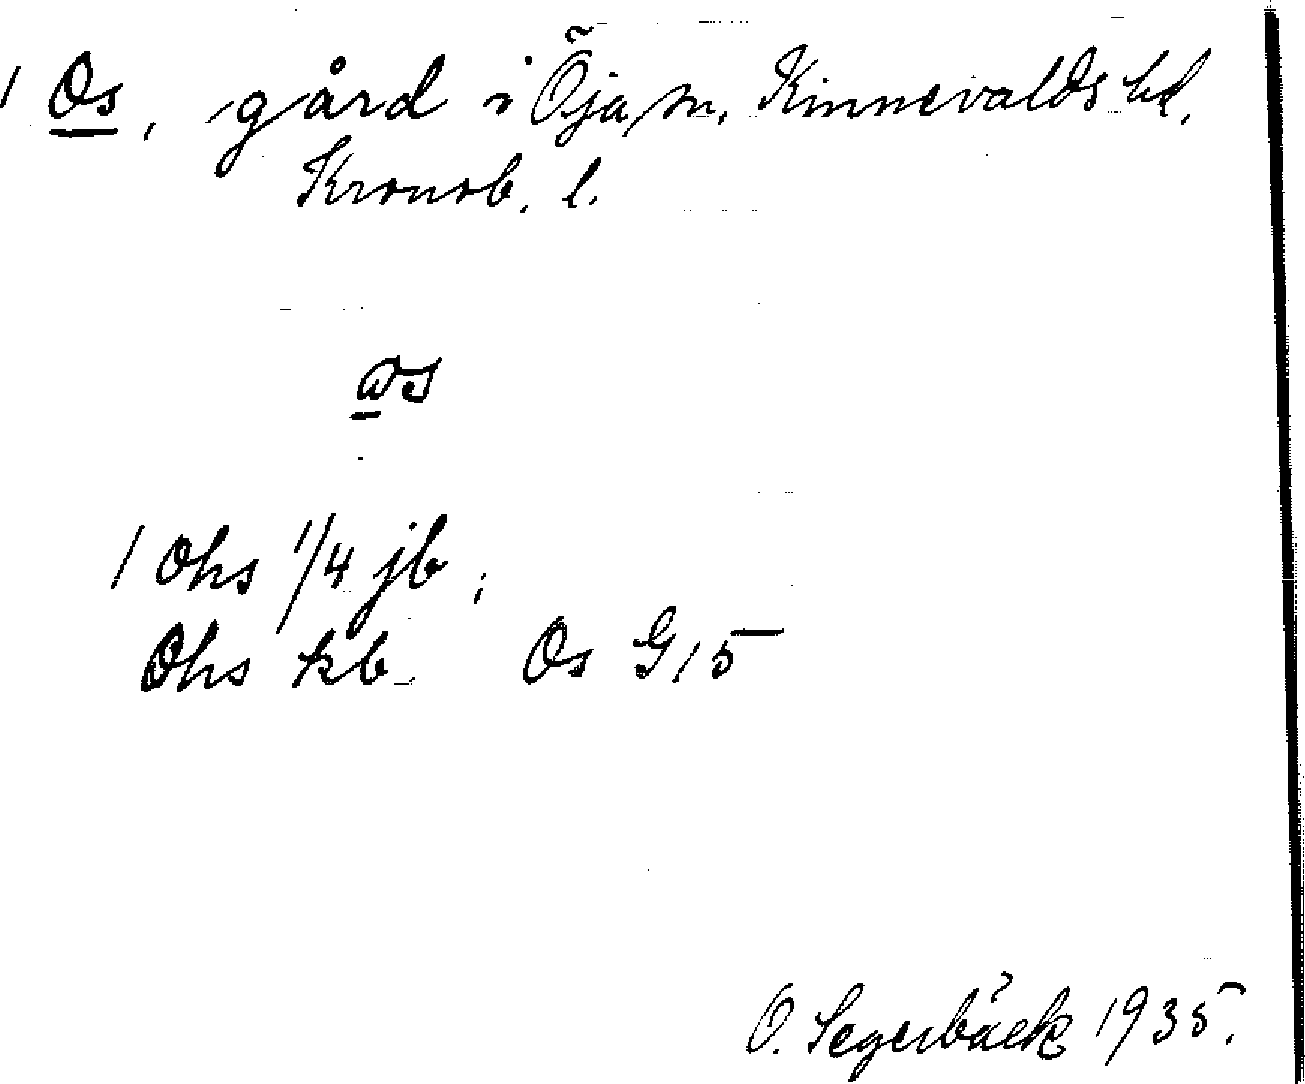 1 Os, gård i Öja sn, Kinnevalds hd,
Kronob. l.
os
1 Ohs 1/4 jb;
Ohs kb Os G15
O. Segerbäck 1935.